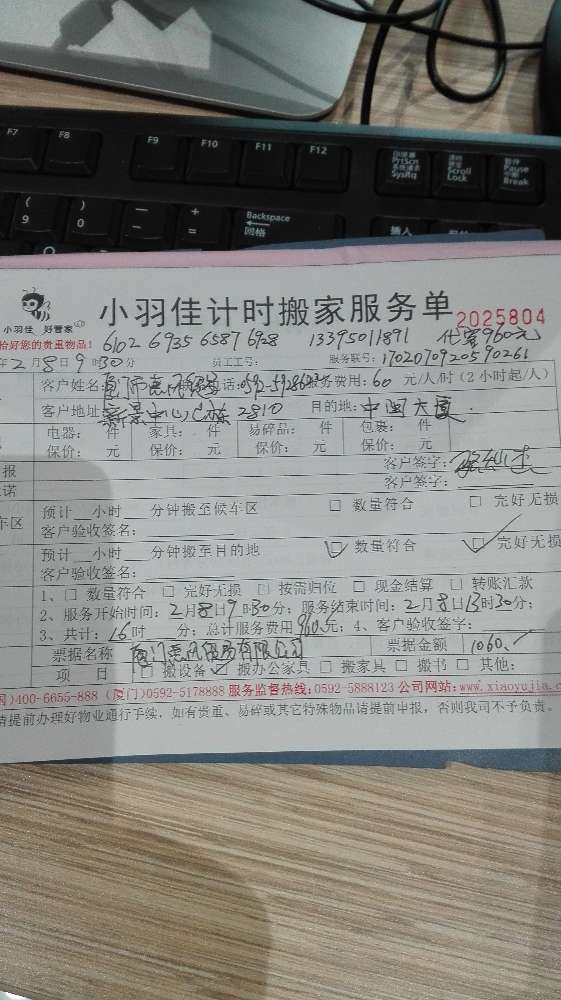 F7 F8 F9 F10 F11 F12 印屏幕 PrtScn 系统请求 SysRq Scroll Lock 暂停 Pause 中断 Break
( 9 ) 0 — - + = Backspace 回格 插入
小羽佳 好管家
小羽佳计时搬家服务单 2025804
恰好您的贵重物品! 6102 6935 6587 6928 13395011891 代寄960元
年2月8日9时30分 员工工号: 服务联号: 1702070920590261
客户姓名 电话: 服务费用: 60 元/人/时 (2小时起/人)
客户地址: 新景中心C栋2810 目的地: 中闽大厦.
电器: 件 家具: 件 易碎品: 件 包裹: 件
保价: 元 保价: 元 保价: 元 保价: 元
报 客户签字:
诺 客户签字:
车区 预计 小时 分钟搬至候车区 □ 数量符合 □ 完好无损
客户验收签名:
预计 小时 分钟搬至目的地 ☑ 数量符合 ☑ 完好无损
客户验收签名:
1、□ 数量符合 □ 完好无损 □ 按需归位 □ 现金结算 □ 转账汇款
2、服务开始时间: 2月8日9时30分; 服务结束时间: 2月8日13时30分;
3、共计: 16时 分; 总计服务费用960元; 4、客户验收签字:
票据名称 票据金额 1060.
项 目 □ 搬设备 ☑ 搬办公家具 □ 搬家具 □ 搬书 □ 其他:
国)400-6655-888 (厦门)0592-5178888 服务监督热线:0592-5888123 公司网站:www.xiaoyujia.c
请提前办理好物业通行手续, 如有贵重、易碎或其它特殊物品请提前申报, 否则我司不予负责。